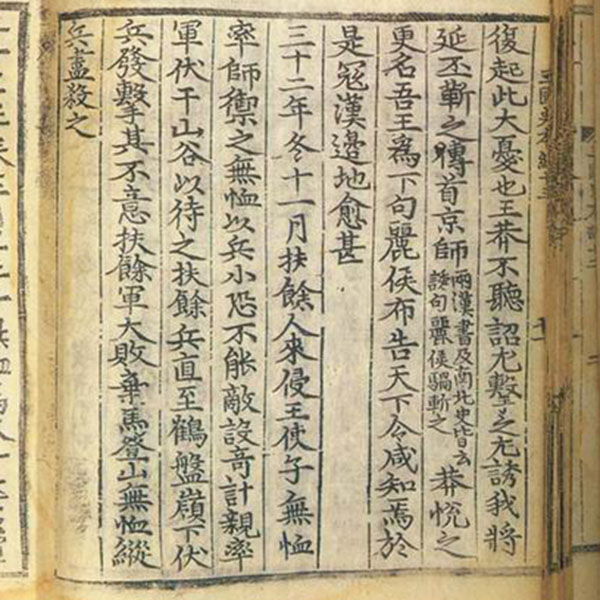 復起此大憂也王莽不聽詔尤擊之尤誘我將
延丕斬之傳首京師兩漢書及南北史皆云誘句麗侯騶斬之莽悅之
更名吾王爲下句麗侯布告天下令咸知焉於
是寇漢邊地愈甚
三十二年冬十一月扶餘人來侵王使子無恤
率師禦之無恤以兵小恐不能敵設奇計親率
軍伏于山谷以待之扶餘兵直至鶴盤嶺下伏
兵發擊其不意扶餘軍大敗棄馬登山無恤縱
兵盡殺之